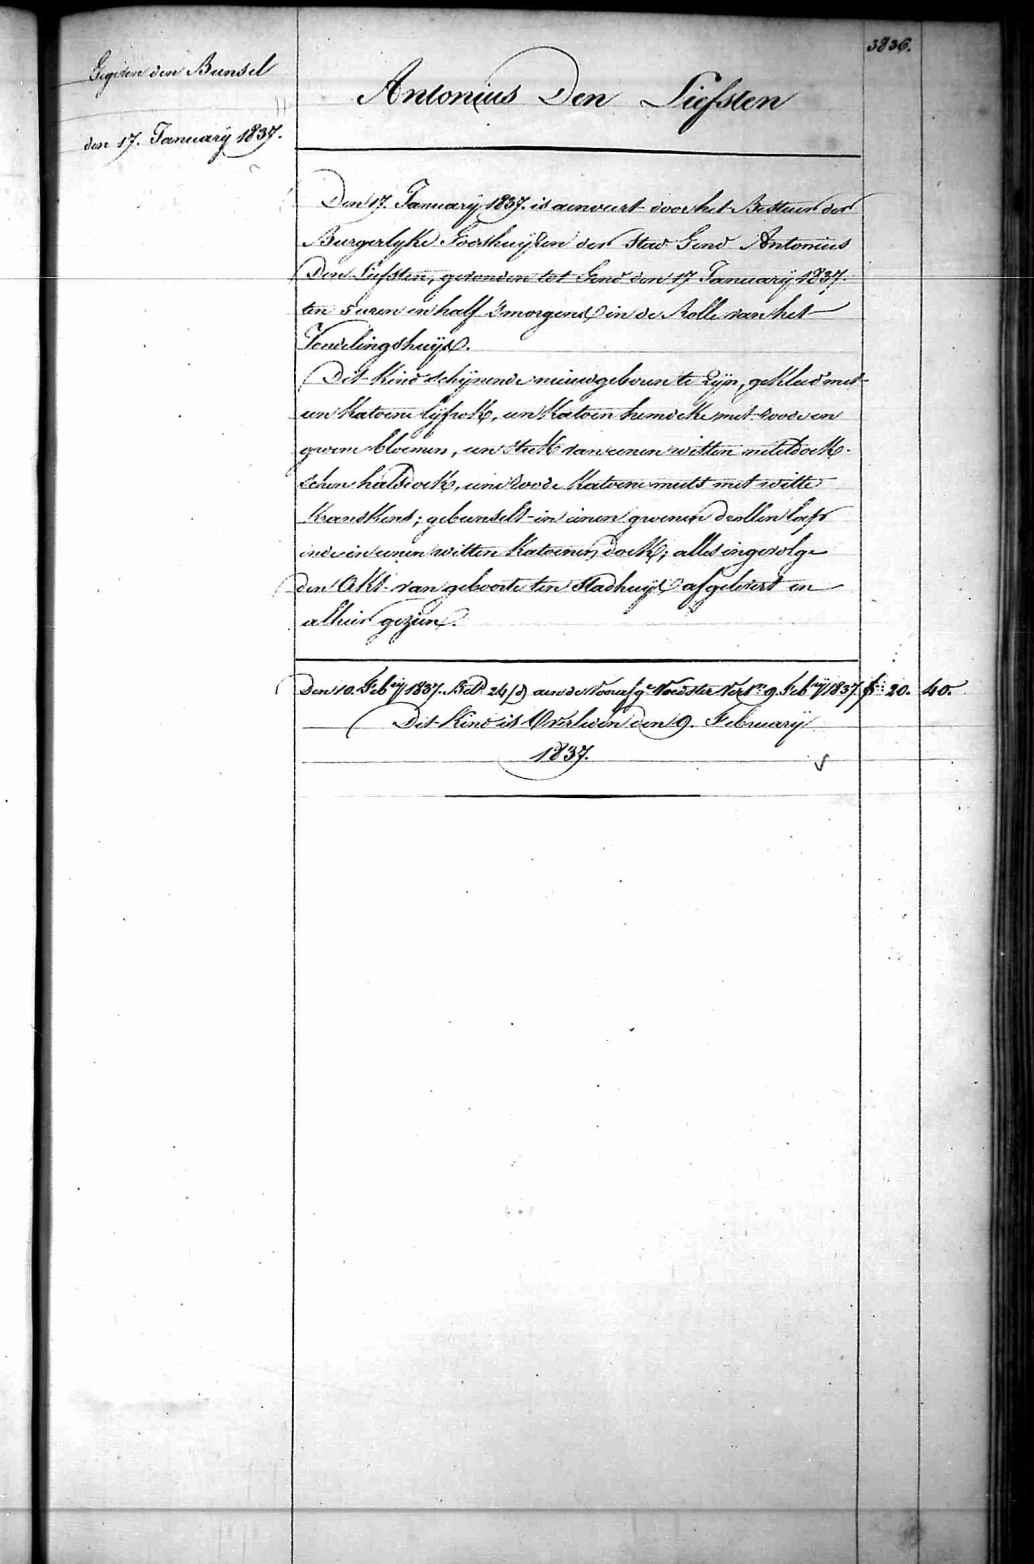 3836.
Gegeven den Bunsel
den 17. January 1837.
Antonius Den Liefsten
Den 17. January 1837. is aenveert door het Bestuer der
Burgerlyke Godshuyzen der Stad Gend Antonius
Den Liefsten, gevonden tot Gend den 17 January 1837.
ten 5 uren en half smorgens in de Rolle van het
Vondelingshuys.
Dit Kind schynende nieuwgeboren te Zyn, gekleed met
een Katoene lyfrok, een Katoen hemdeke met roode en
groene bloemen, een stuk van eenen witten neteldoek-
schen halsdoek, eene roode Katoene muts met witte
Kranskens; gebunselt in eenen groenen drollen lap
ende in eenen witten Katoenen doek; alles ingevolge
den Akt van geboorte ten Stadhuys afgelevert en
alhier gezien.
Den 10. Feb.ry 1837. Bet. 24 aen de Voedster 9 Feb.ry 1837 f: 20. 40.
Dit Kind is Overleden den 9. February
1837.